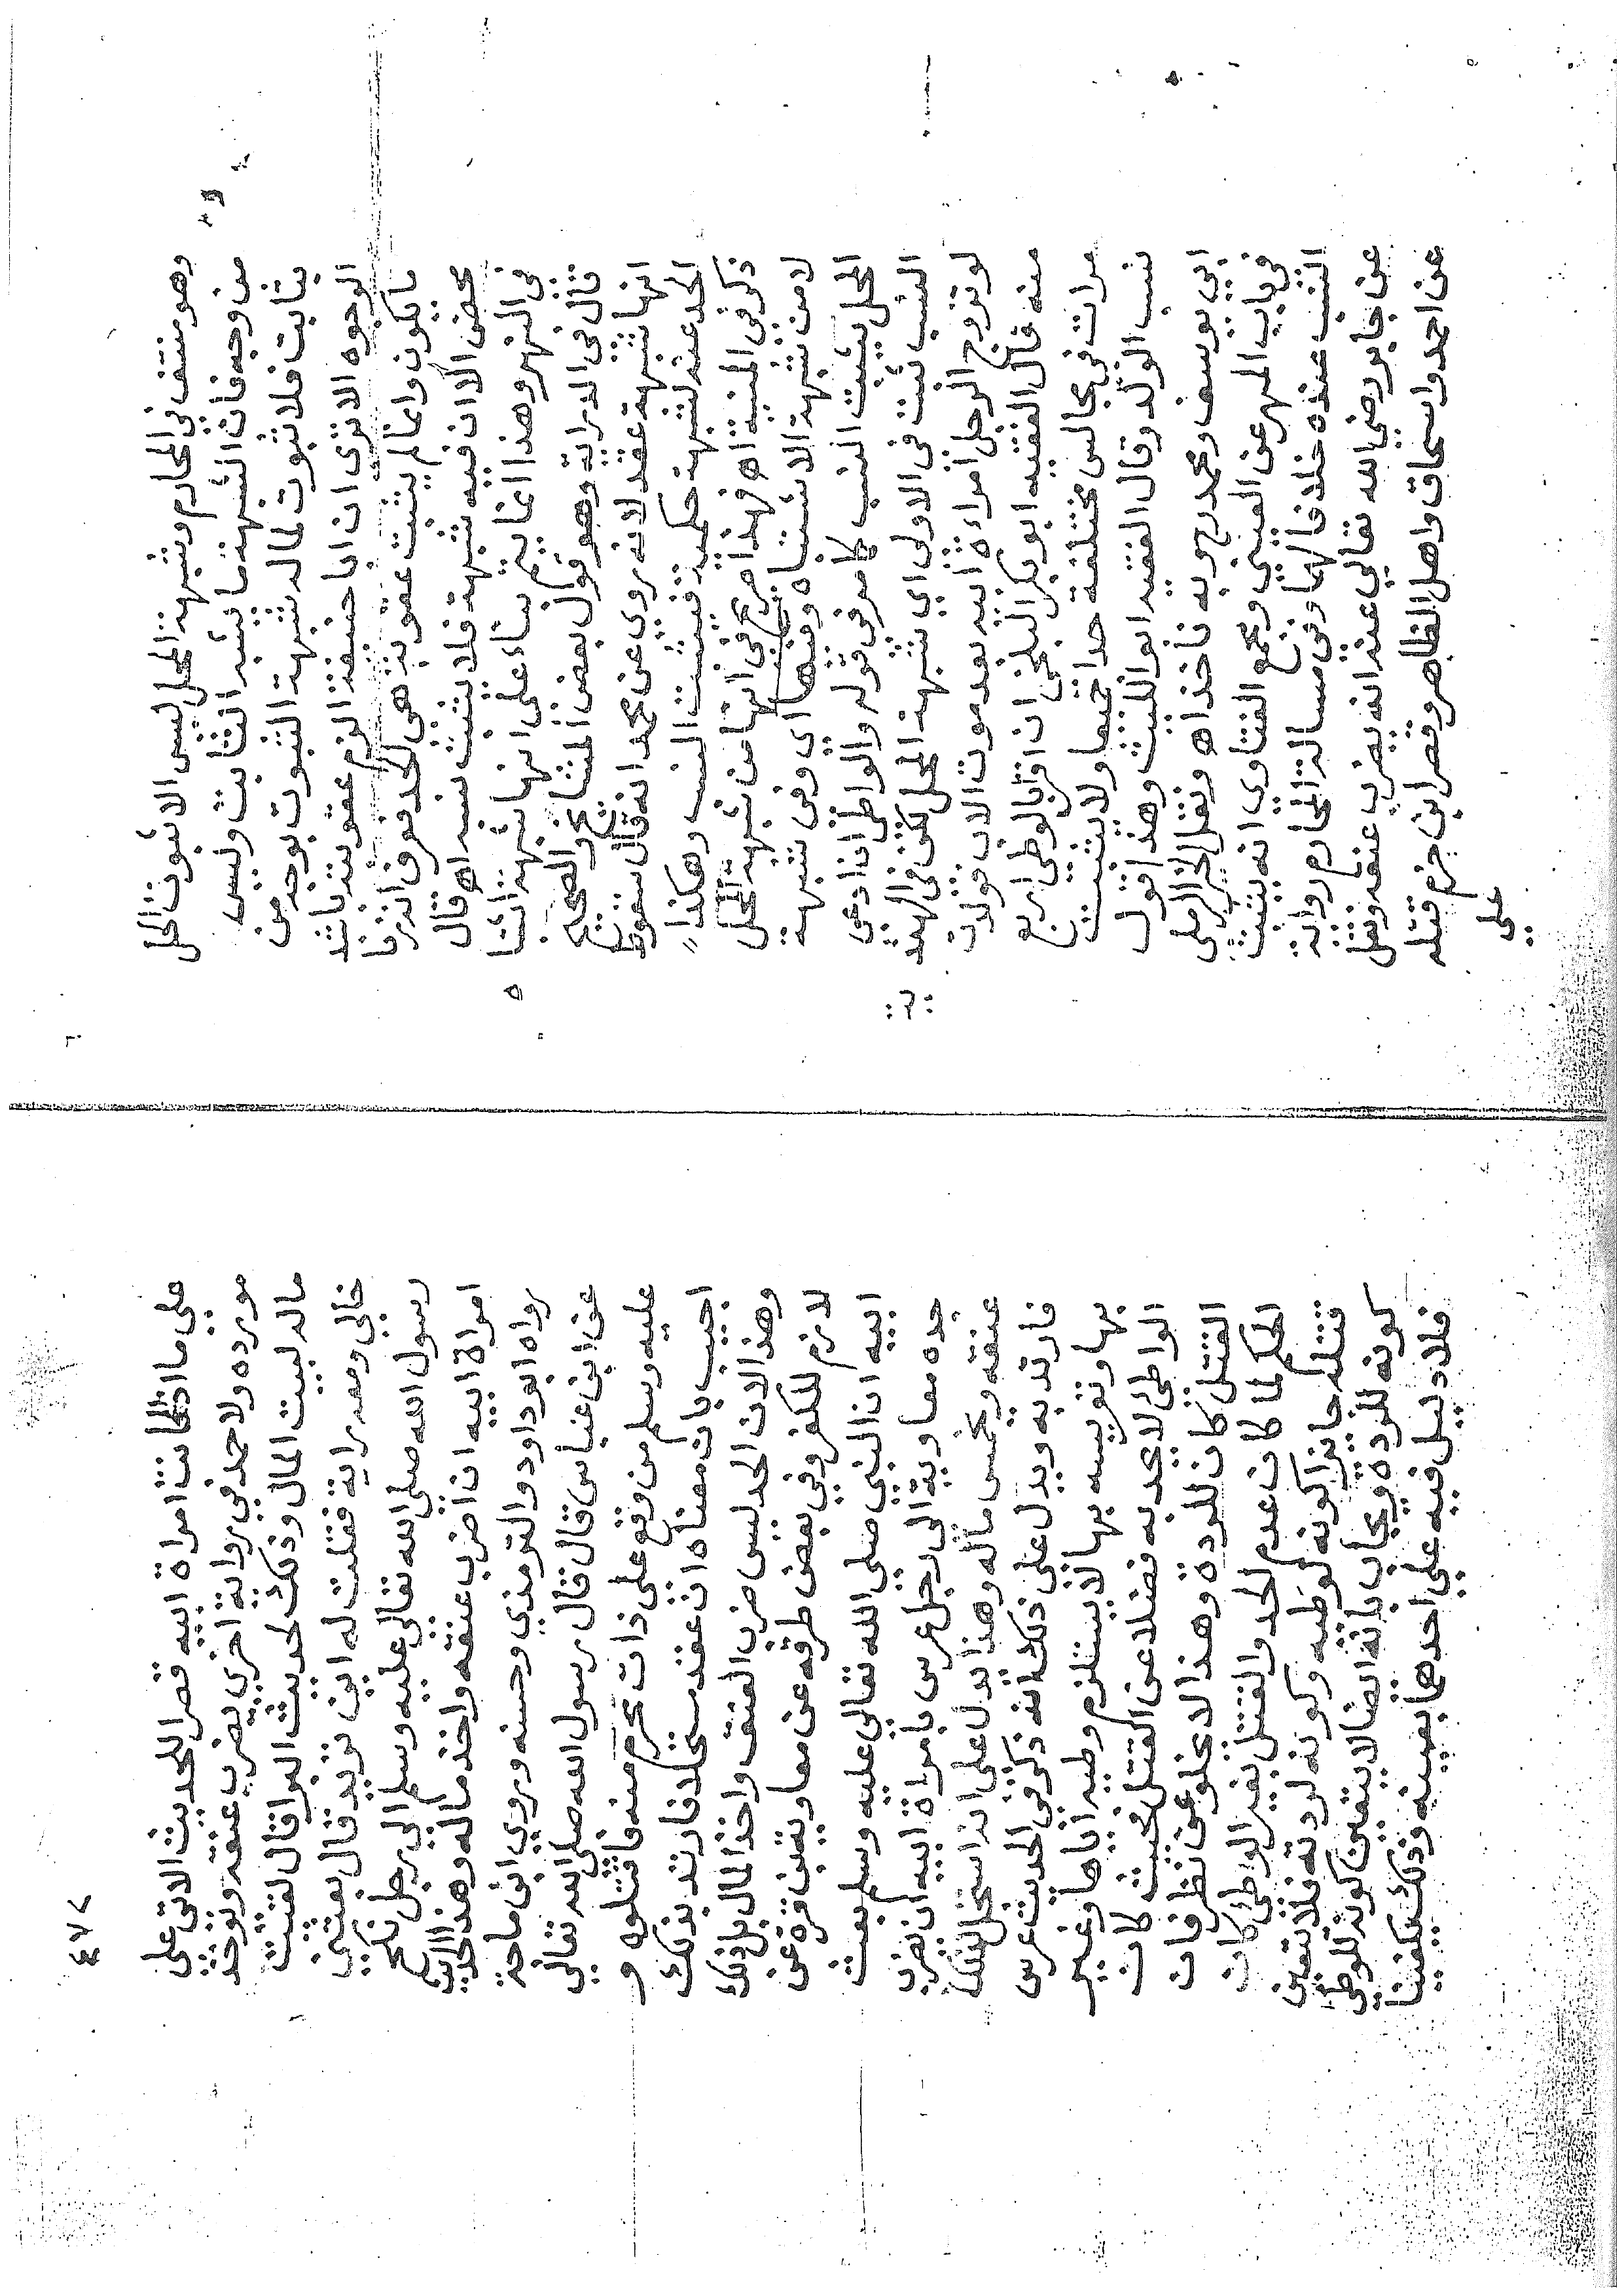 وهو منتف في المحارم وشبهة المحل ليس الا ثبوت الحل
من وجه فان الشبهة ما يشبه الثابت وليس
بثابت فلا ثبوت لما له شبهة الثبوت بوجه من
الوجوه الا ترى ان ابا حنيفة الزم عقوبته باشد
ما يكون وانما لم يثبت عقوبة هي الحد فعرف انه زنا
محض الا ان فيه شبهة فلا يثبت نسبه اه قال
في النهر وهذا انما يتم بناء على انها شبهة اشتباه
قال في الدراية وهو قول بعض المشايخ والصحيح
انها شبهة عقد لانه روى عن محمد انه قال سقوط
الحد عنه لشبهة حكمية فيثبت النسب وهكذا
ذكر في المنية اه فهذا صريح في انها من شبهة المحل
لا من شبهة الاشتباه وفيها اي وفي شبهة
المحل يثبت النسب كما مر في قوله والواطئ ان ادعى
النسب يثبت في الاولى اي شبهة المحل لكن في الهندية
لو تزوج الرجل امراءة ابيه بعد موت الاب فولدت
منه قال الفقيه ابو بكر البلخي ان اقر بالوطئ اربع
مرات في مجالس مختلفة حدا جميعا ولا يثبت
نسب الولد وقال الفقيه ابو الليث وهذا قول
ابي يوسف ومحمد رح وبه ناخذ اه ونقل الخير الرملي
في باب المهر عن العيني ومجمع الفتاوى انه يثبت
النسب عنده خلافا لهما وفي مسالة المحارم رواية
عن جابر رضي الله تعالى عنه انه يضرب عنقه ونقل
عن احمد واسحاق واهل الظاهر وقصر ابن حزم قتله
على
٤٧٨
على ما اذا كانت امراة ابيه قصرا للحديث الاتي على
مورده ولاحمد في رواية اخرى يضرب عنقه ويؤخذ
ماله لبيت المال وذلك لحديث البرا قال لقيت
خالي ومعه راية فقلت له اين تريد قال بعثني
رسول الله صلى الله تعالى عليه وسلم الى رجل نكح
امراة ابيه ان اضرب عنقه واخذ ماله وهذا الحديث
رواه ابو داود والترمذي وحسنه وروي ابن ماجة
عن ابن عباس قال قال رسول الله صلى الله تعالى
عليه وسلم من وقع على ذات محرم منه فاقتلوه و
اجيب بان معناه ان عقد مستحلا فارتد بذلك
وهذا لان الحد ليس ضرب العنق واخذ المال بل ذلك
لازم للكفر وفي بعض طرقه عن معاوية بن قرة عن
ابيه ان النبي صلى الله تعالى عليه وسلم بعث
جده معاوية الى رجل عرس بامراة ابيه ان يضرب
عنقه ويخمس ماله وهذا يدل على انه استحل ذلك
فارتد به ويدل على ذلك انه ذكر في الحديث عرس
بها وتعريسه بها لا يستلزم وطيه اياها وغير
الواطئ لا يحد به فضلا عن القتل فحيث كان
القتل كان للردة وهذا لا يخلو عن نظر فان
الحكم لما كان عدم الحد والقتل بغير الوطئ كان
قتله جائزا كونه لوطيه وكونه لردته فلا يتعين
كونه للردة ويجاب بانه ايضا لا يتعين كونه للوطئ
فلا دليل فيه على احدهما بعينه وذلك يكفينا